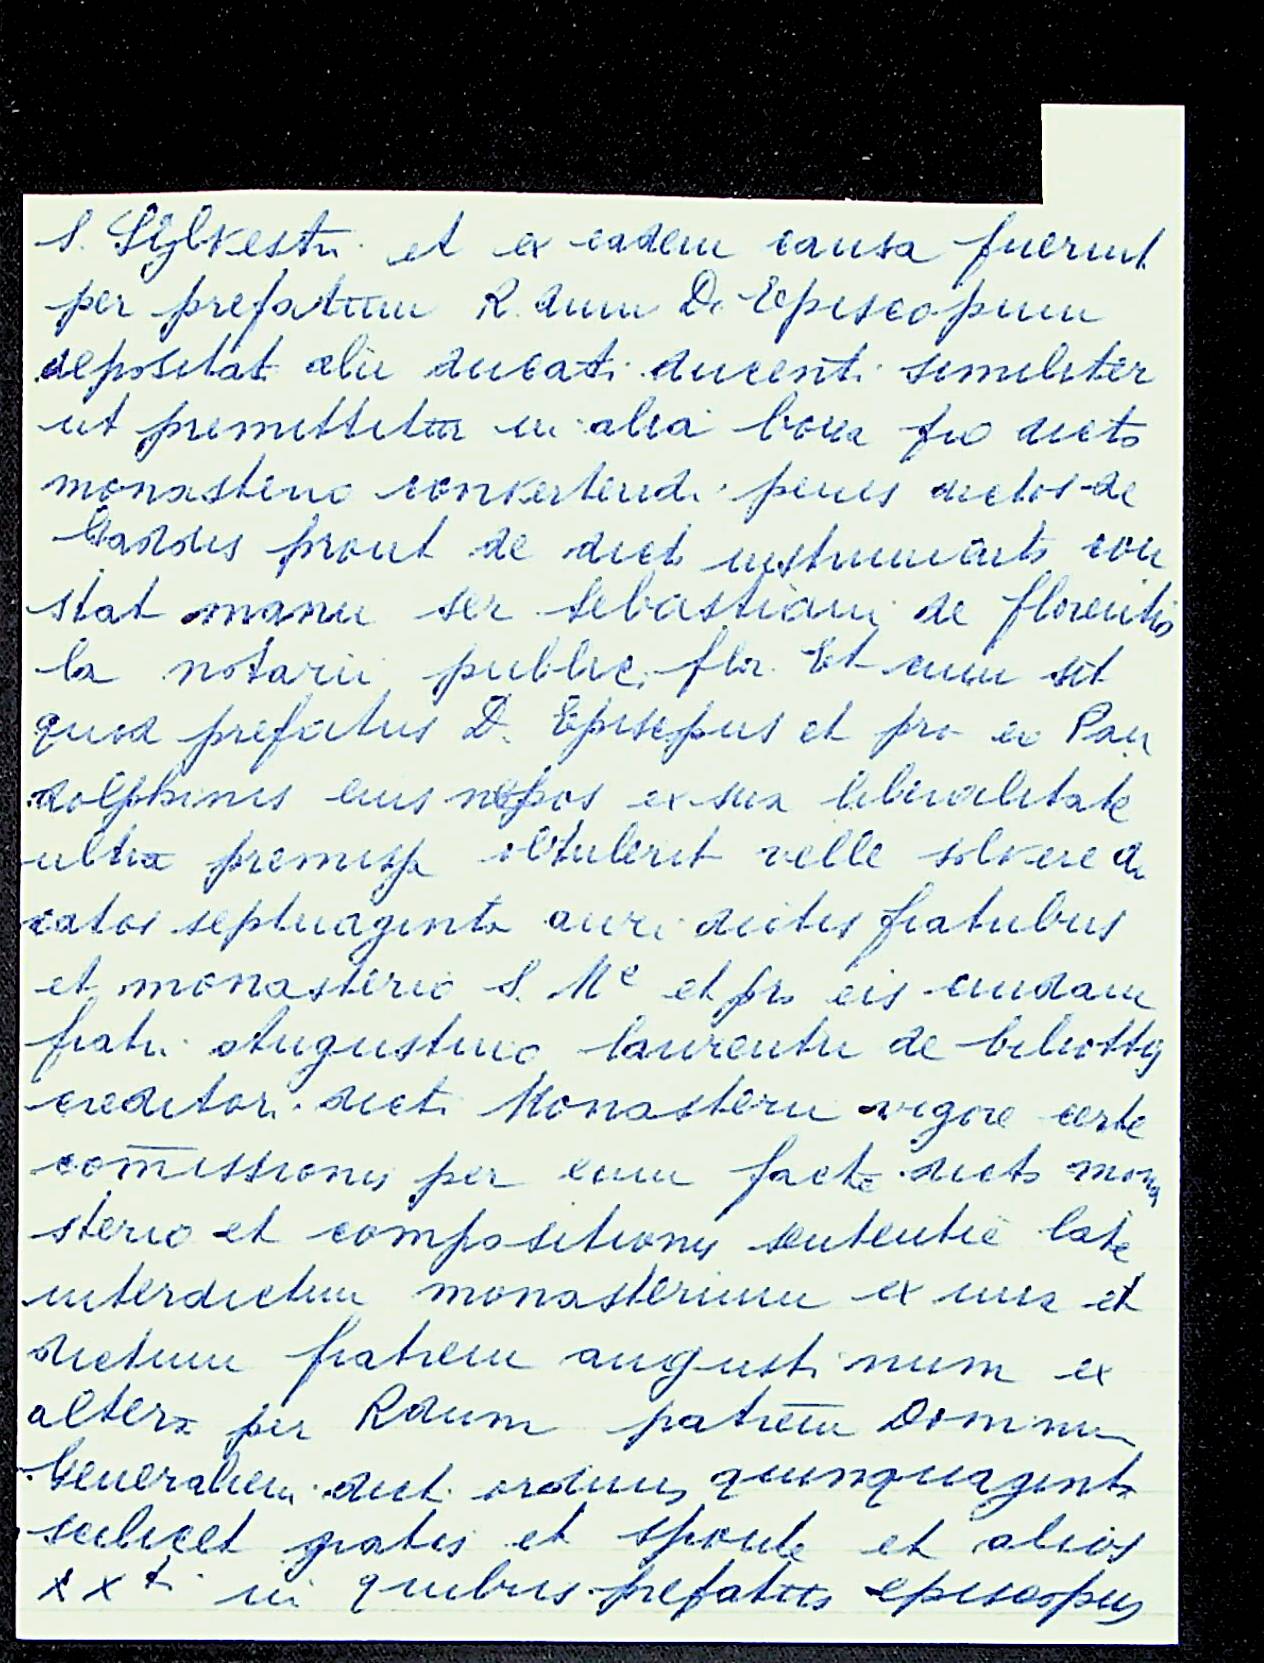 S. Sylvestri et ex eadem causa fuerunt
per prefatum R. dum D. Episcopum
depositat alii ducati ducenti similiter
ut premittitur in alia bona pro dicto
monasterio convertendi penes dictos de
Gaddis prout de dicto instrumento con
stat manu ser Sebastiani de florentio
la notarii public. flor. Et cum sit
quod prefatus D. Episcopus et pro eo Pan
dolphinis eius nepos ex sua liberalitate
ultra premissa obtulerit velle solvere du
catos septuaginta auri dictis fratribus
et monasterio S. Me et pro eis cuidam
fratri Augustino laurentii de biliottis
creditori dicti Monasterii vigore certe
comissionis per eum facte dicto mona
sterio et compositionis sententie late
inter dictum monasterium ex una et
dictum fratrem augustinum ex
altera per Rdum patrem Dominum
Generalem dict. ordinis quinquaginta
scilicet gratis et sponte et alios
xxti in quibus prefatus episcopus